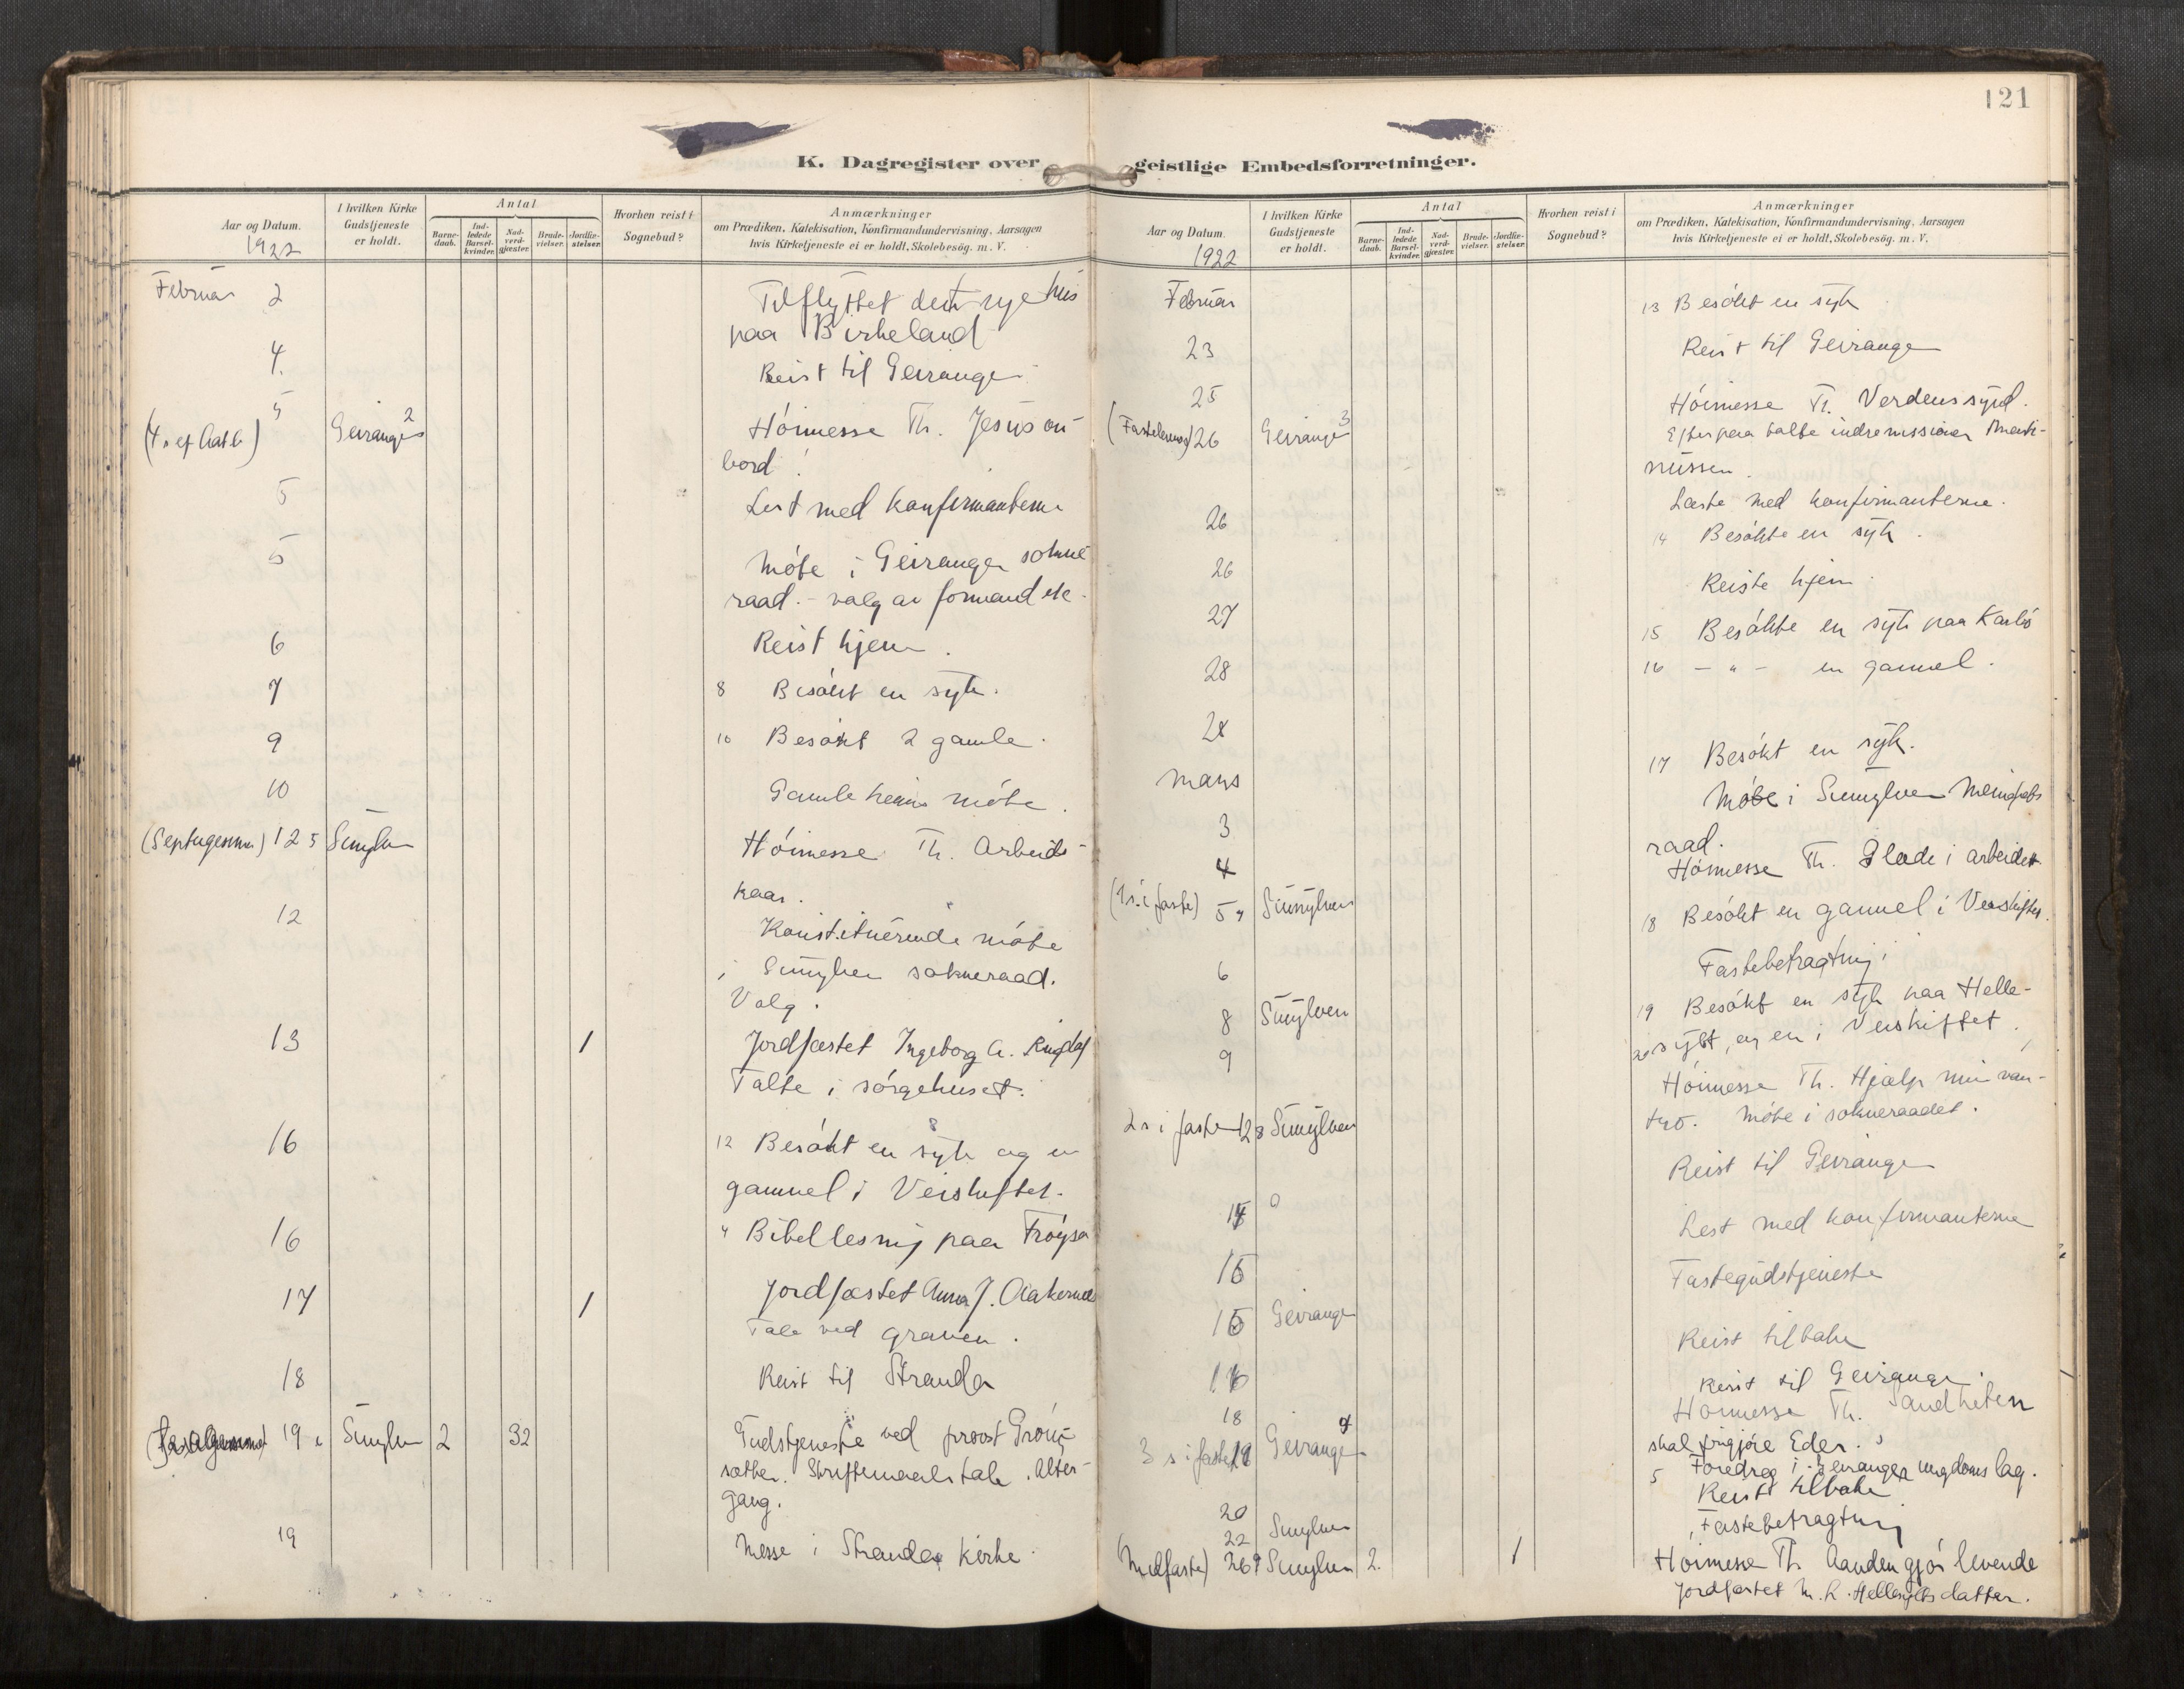 121
K. Dagregister over geistlige Embedsforretninger.
Aar og Datum.
1922
I hvilken Kirke Gudstjeneste er holdt.
Antal
Barnedaab.
Indledede Barselkvinder.
Nadverdgjæster.
Brudevielser.
Jordfæstelser.
Hvorhen reist i Sognebud?
Anmærkninger
om Prædiken, Katekisation, Konfirmandundervisning, Aarsagen
hvis Kirketjeneste ei er holdt, Skolebesøg. m. V.
Februar 2 Tilflyttet det nye hus
paa Birkeland
4. Reist til Geiranger
5
Geiranger 2 Höimesse Th. Jesus om
bord!
5 Lest med konfirmanterne
5 Möte i Geiranger sokne
raad. - valg av formand etc.
6 Reist hjem.
7 8 Besökt en syk.
9 10 Besökt 2 gamle.
10 Gamleheims möte.
12 5 Sunylven Höimesse Th. Arbeids-
kaar.
12 Konstituerende möte
i Sunylven sokneraad.
Valg.
13 1 Jordfæstet Ingeborg A.
Talte i sörgehuset.
16 12 Besökt en syk og en
gammel i
16 Bibellesning paa Fröysa
17 1 Jordfæstet Anna J.
Tale ved graven.
18 Reist til Stranda
19 Sunylven 2 32 Gudstjeneste ved provst Grön-
sæther. Skriftemaalstale. Alter-
gang.
19 Messe i Stranda kirke.
Aar og Datum.
1922
I hvilken Kirke Gudstjeneste er holdt.
Antal
Barnedaab.
Indledede Barselkvinder.
Nadverdgjæster.
Brudevielser.
Jordfæstelser.
Hvorhen reist i Sognebud?
Anmærkninger
om Prædiken, Katekisation, Konfirmandundervisning, Aarsagen
hvis Kirketjeneste ei er holdt, Skolebesög. m. V.
Februar 13 Besökt en syk
23 Reist til Geiranger
25 Höimesse Th. Verdens synd.
(Fastelavns) 26 Geiranger 3 Efterpaa talte indremissionær Marti-
nussen.
Læste med konfirmanterne.
26 14 Besökte en syk.
26 Reiste hjem.
27 15 Besökte en syk paa
28 16 - " - en gammel.
17 Besökt en syk.
Mars Möte i Sunnylven Menighets
raad.
3 Höimesse Th. Glæde i arbeidet.
4
(1 s. i faste) 5 Sunnylven 18 Besökt en gammel i
6 Fastebetragtning
8 Sunylven 19 Besökt en syk paa Helle-
9 20 sylt, og en i
Höimesse Th. Hjælp min van-
2 s i faste 12 8 Sunylven tro. Möte i sokneraadet.
Reist til Geiranger
Lest med konfirmanterne
15 Fastegudstjeneste
15 Geiranger Reist tilbake
16
Reist til Geiranger.
18 Höimesse Th. Sandheten
3 s i faste 19 Geiranger 4 skal frigjöre Eder.
5 Foredrag i Geiranger ungdomslag.
20 Reist tilbake
22 Sunylven Fastebetragtning
(Midfaste) 26 9 Sunylven 2. 1 Höimesse Th. Aanden gjör levende
Jordfæstet M. L. Hellesyltsdatter.